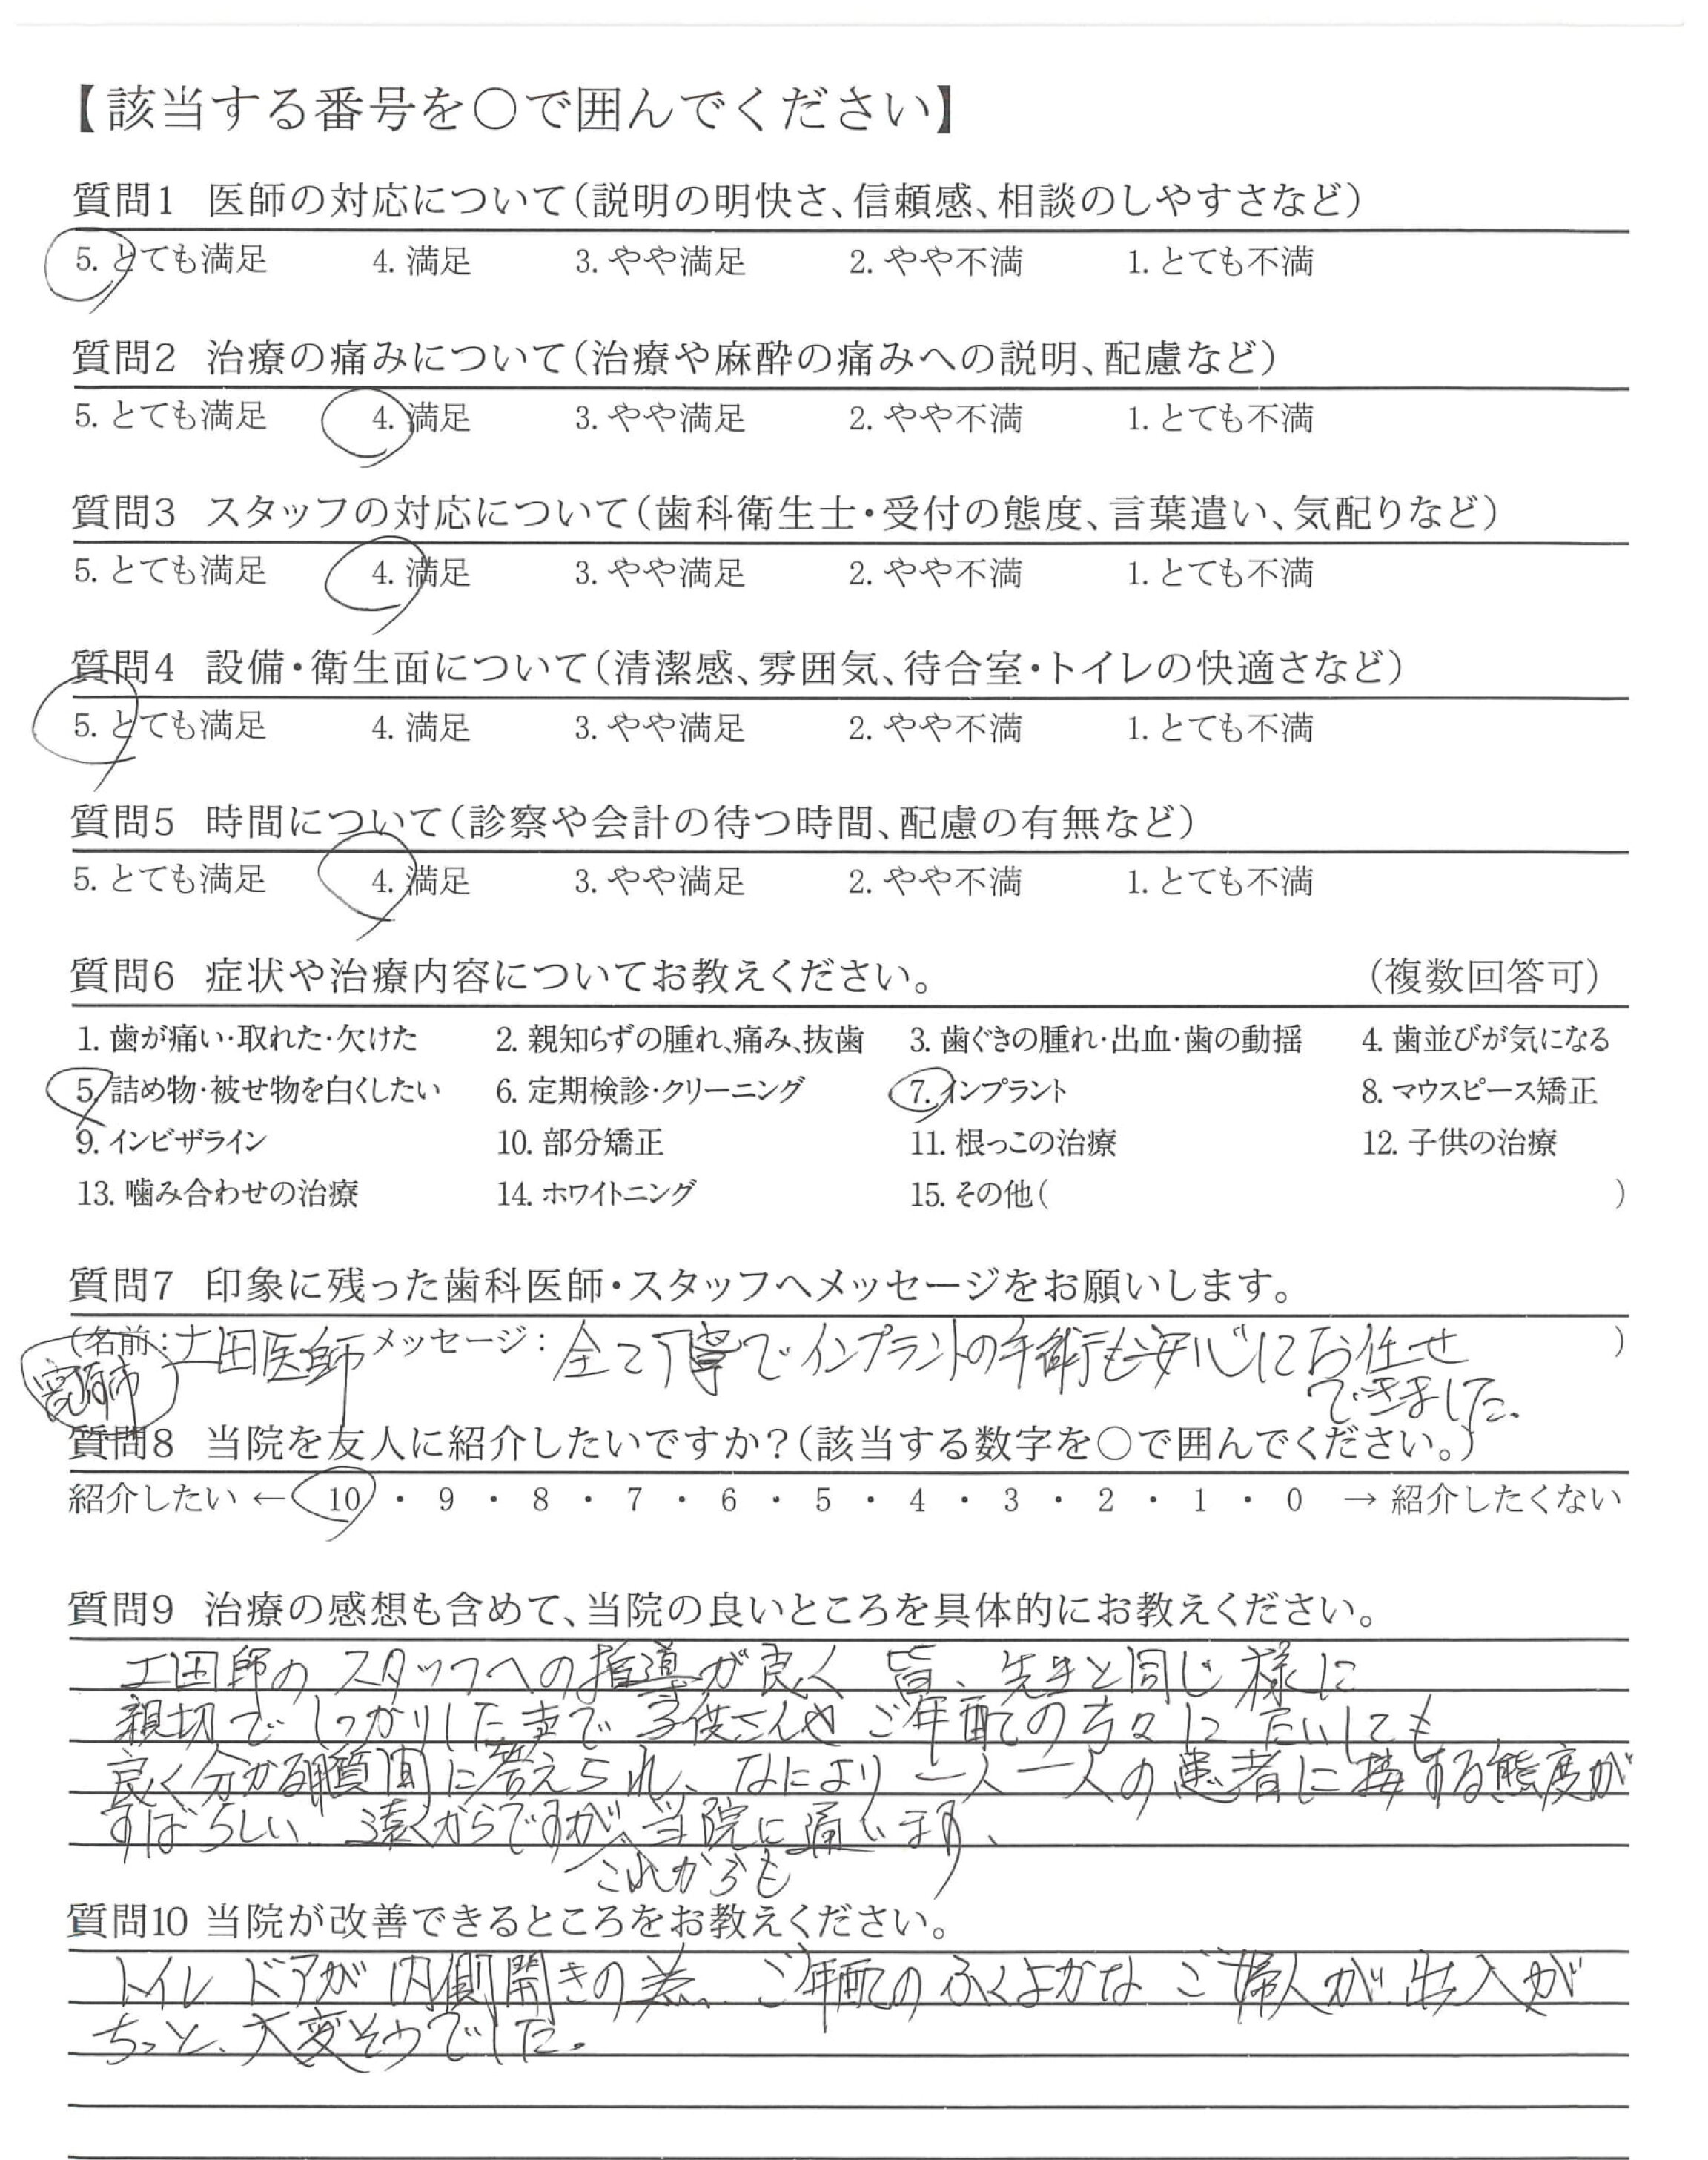 【該当する番号を○で囲んでください】
質問1 医師の対応について(説明の明快さ、信頼感、相談のしやすさなど)
5. とても満足 4. 満足 3. やや満足 2. やや不満 1. とても不満
質問2 治療の痛みについて(治療や麻酔の痛みへの説明、配慮など)
5. とても満足 4. 満足 3. やや満足 2. やや不満 1. とても不満
質問3 スタッフの対応について(歯科衛生士・受付の態度、言葉遣い、気配りなど)
5. とても満足 4. 満足 3. やや満足 2. やや不満 1. とても不満
質問4 設備・衛生面について(清潔感、雰囲気、待合室・トイレの快適さなど)
5. とても満足 4. 満足 3. やや満足 2. やや不満 1. とても不満
質問5 時間について(診察や会計の待つ時間、配慮の有無など)
5. とても満足 4. 満足 3. やや満足 2. やや不満 1. とても不満
質問6 症状や治療内容についてお教えください。 (複数回答可)
1. 歯が痛い・取れた・欠けた 2. 親知らずの腫れ、痛み、抜歯 3. 歯ぐきの腫れ・出血・歯の動揺 4. 歯並びが気になる
5. 詰め物・被せ物を白くしたい 6. 定期検診・クリーニング 7. インプラント 8. マウスピース矯正
9. インビザライン 10. 部分矯正 11. 根っこの治療 12. 子供の治療
13. 噛み合わせの治療 14. ホワイトニング 15. その他( )
質問7 印象に残った歯科医師・スタッフへメッセージをお願いします。
(名前: 土田医師 メッセージ: 全て丁寧でインプラントの手術も安心にお任せ )
できました。
質問8 当院を友人に紹介したいですか?(該当する数字を○で囲んでください。)
紹介したい ← 10 ・ 9 ・ 8 ・ 7 ・ 6 ・ 5 ・ 4 ・ 3 ・ 2 ・ 1 ・ 0 → 紹介したくない
質問9 治療の感想も含めて、当院の良いところを具体的にお教えください。
土田師のスタッフへの指導が良く皆、先生と同じ様に
親切でしっかりした声で子供さんやご年配の方々にたいしても
良く分かる様質問に答えられ、なにより一人一人の患者に接する態度が
すばらしい 遠くからですが、当院に通います、
これからも
質問10 当院が改善できるところをお教えください。
トイレドアが内側開きの為、ご年配のふくよかなご婦人が出入が
ちっと、大変そうでした。